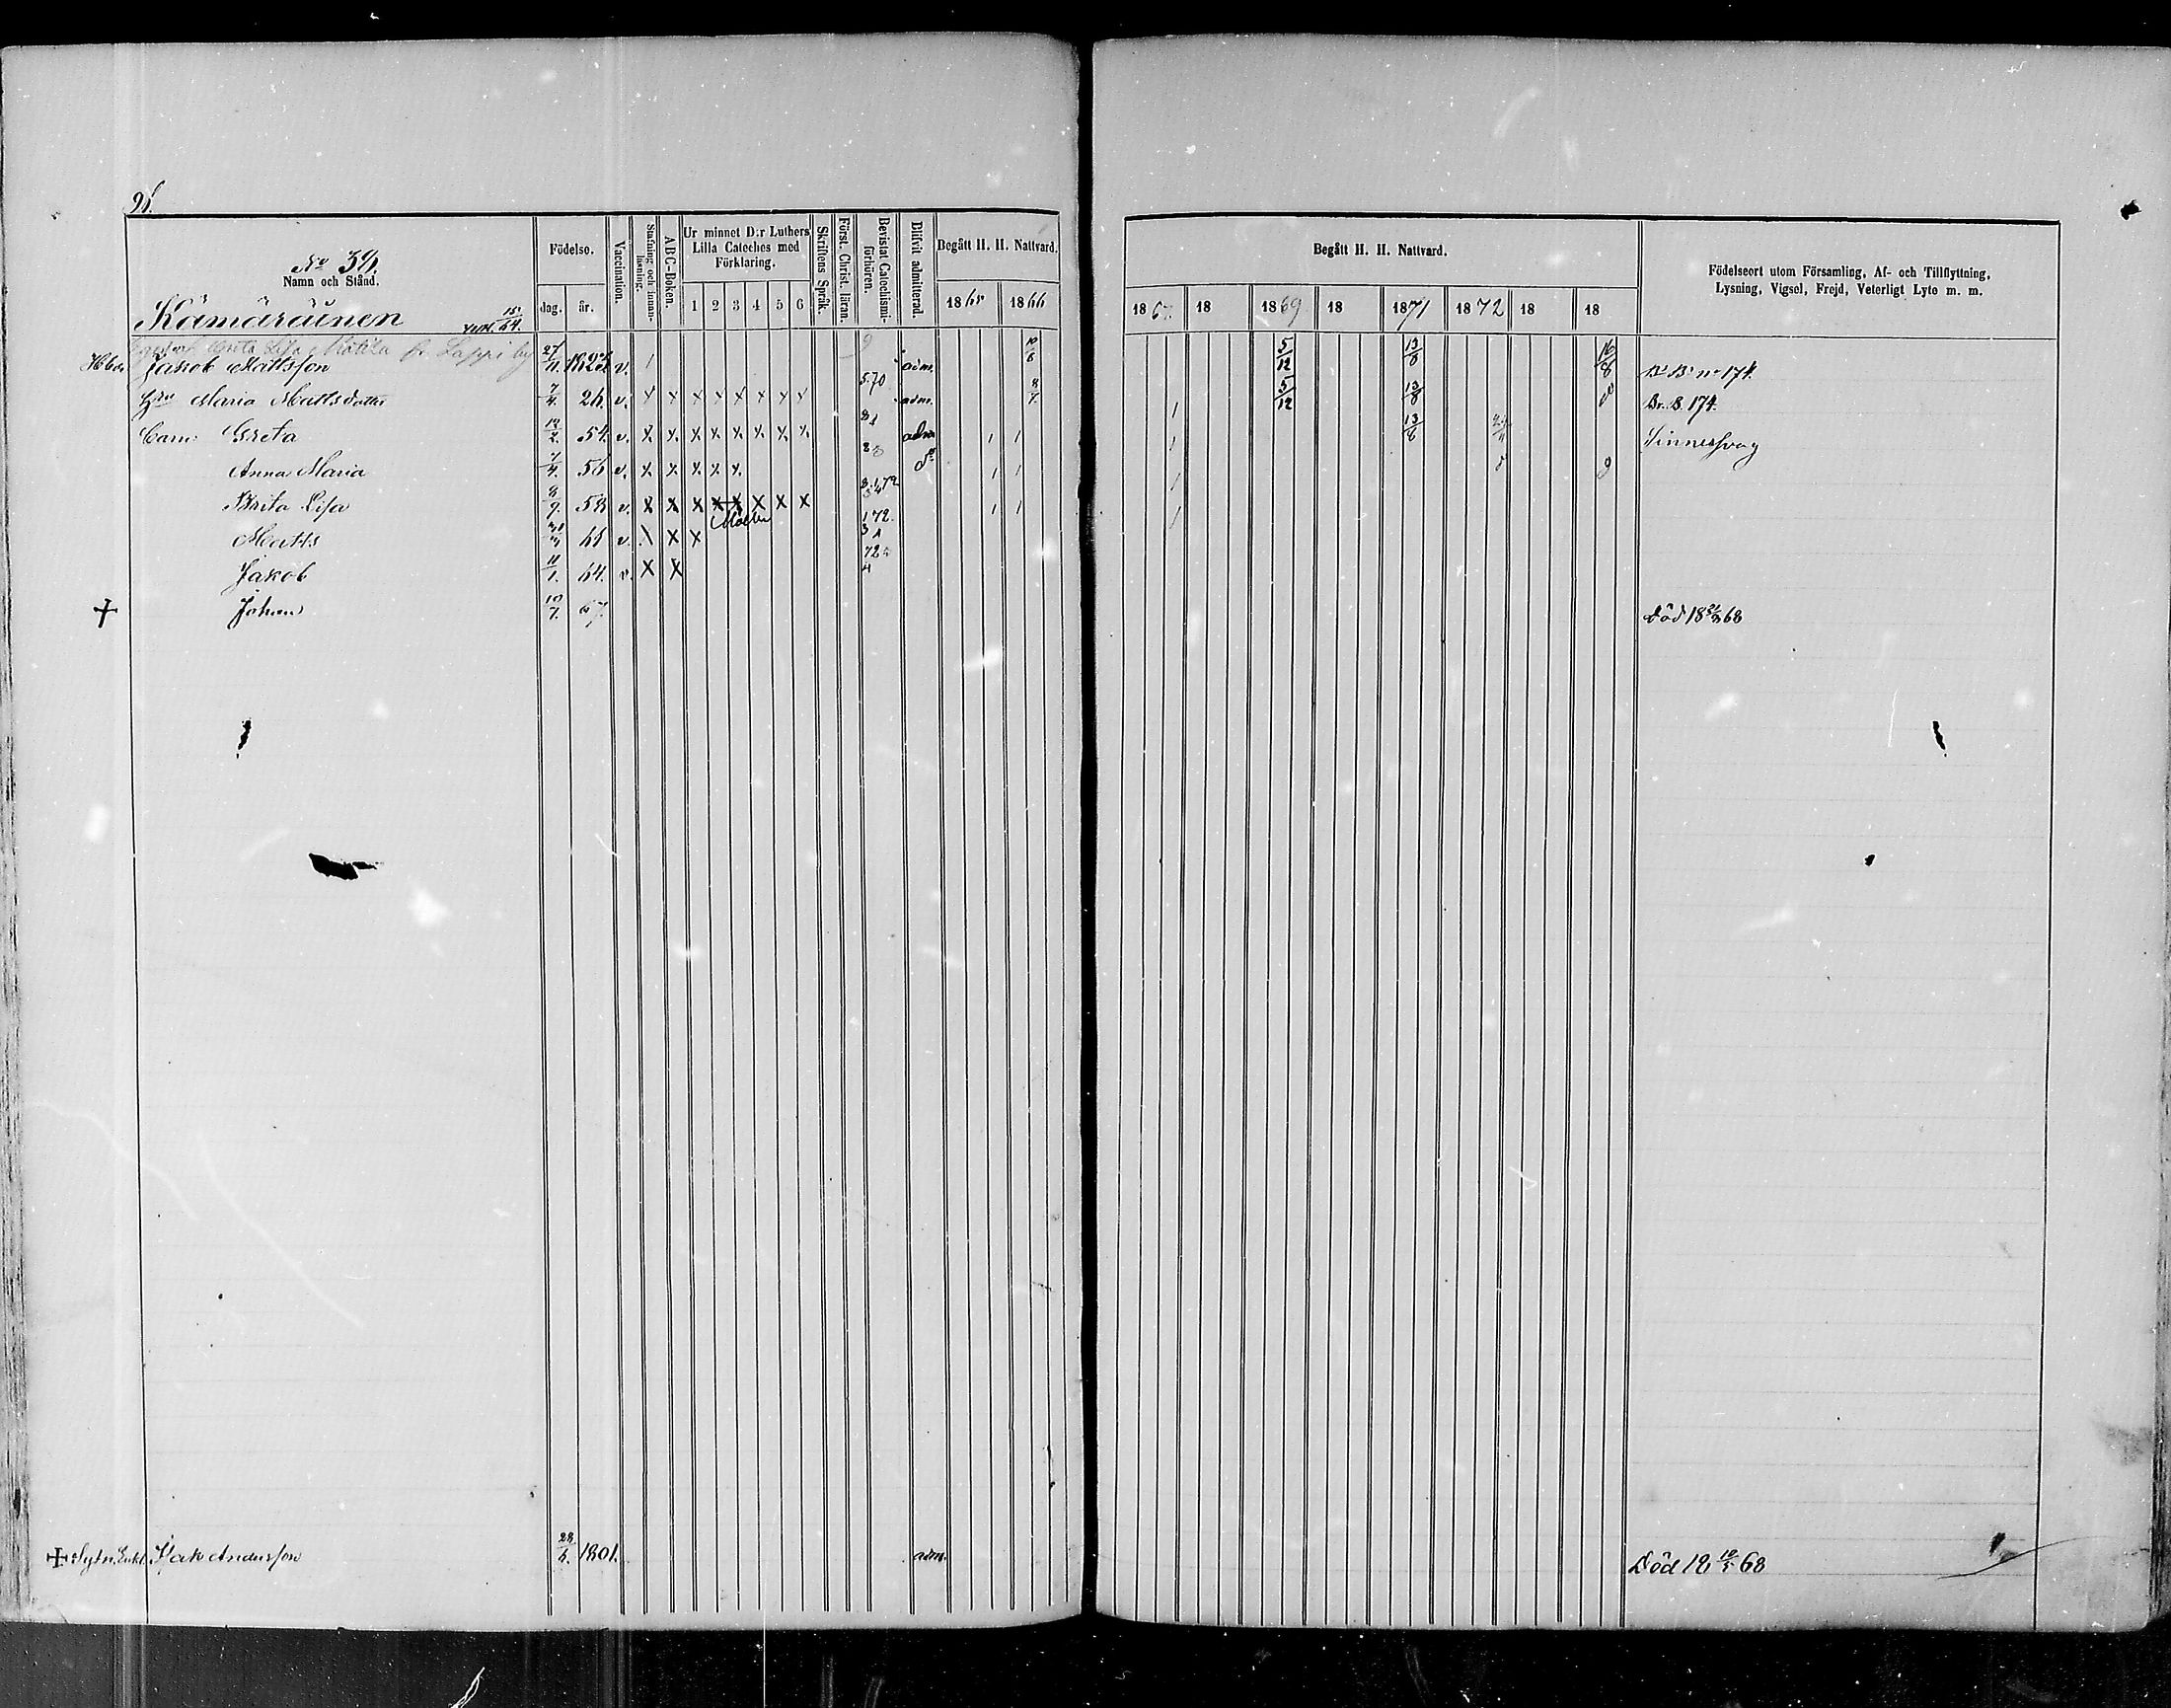 No 38.
Namn och Stånd.
Födelse.
dag. år.
Vaccination.
Stafning och Innanläsning.
ABC-Boken.
Ur minnet D:r Luthers Lilla Cateches med Förklaring.
1 2 3 4 5 6
Skriftens Språk.
Först. Christ. läran.
Bevistat Catechismiförhören.
Blifvit admitterad.
Begått H. H. Nattvard.
1865 1866
Begått H. H. Nattvard.
1867. 18 1869 18 1871 1872 18 18
Födelseort utom Församling, Af- och Tillflyttning,
Lysning, Vigsel, Frejd, Veterligt Lyte m. m.
Kämäräinen 15/64.
Greta Lisa Kotila fr. Lappi by
Hbde. Jakob Mattsson 27/11. v. adm. 10/6 5/12 13/8 16/8 n:o 174.
Hru Maria Mattsdotter 7/4. 26. v. x x x x x x x x 5.70 adm. 8/7 5/12 13/8 Br. B. 174.
Barn: Greta 12/2. 54. v. x x. x x x x x x adm 1 1 1 13/8 Sinnessvag
Anna Maria 7/4. 56 v. x x x x x. do 1 1 1
Brita Lisa 8/9. 58 v. x x x x x x x x 1 1 1
Matts 61 v. \ x x 1 72. 1
Jakob 11/1. 64. v. x x 72
+ Johan 10/7. 67. Död 18 68
+ Sytn. Enkl. Isak Andersson 28/6. 1801. adm. Död 18 10/5 68